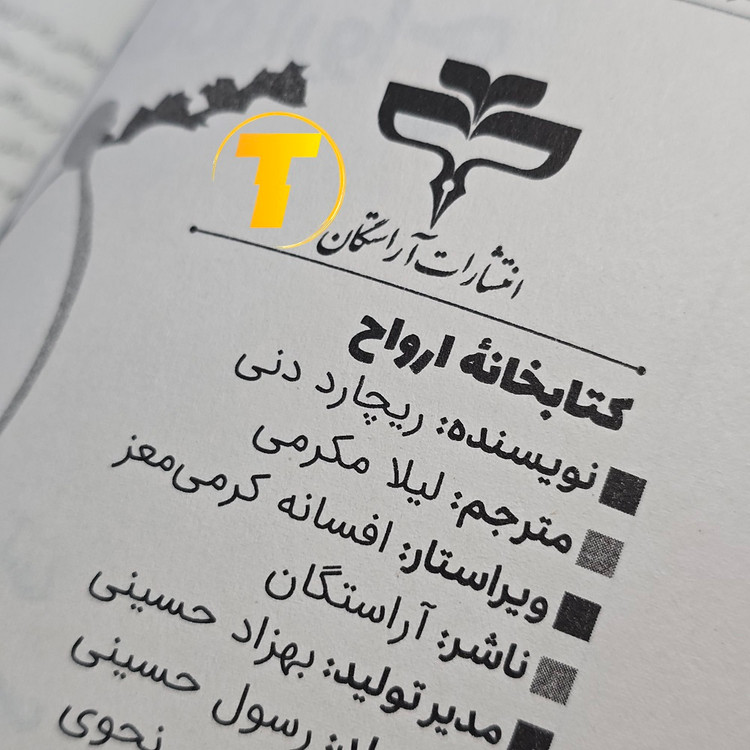 T
انتشارات آراستگان
کتابخانهٔ ارواح
نویسنده: ریچارد دنی
مترجم: لیلا مکرمی
ویراستار: افسانه کرمی‌معز
ناشر: آراستگان
مدیر تولید: بهزاد حسینی
رسول حسینی
نحوی